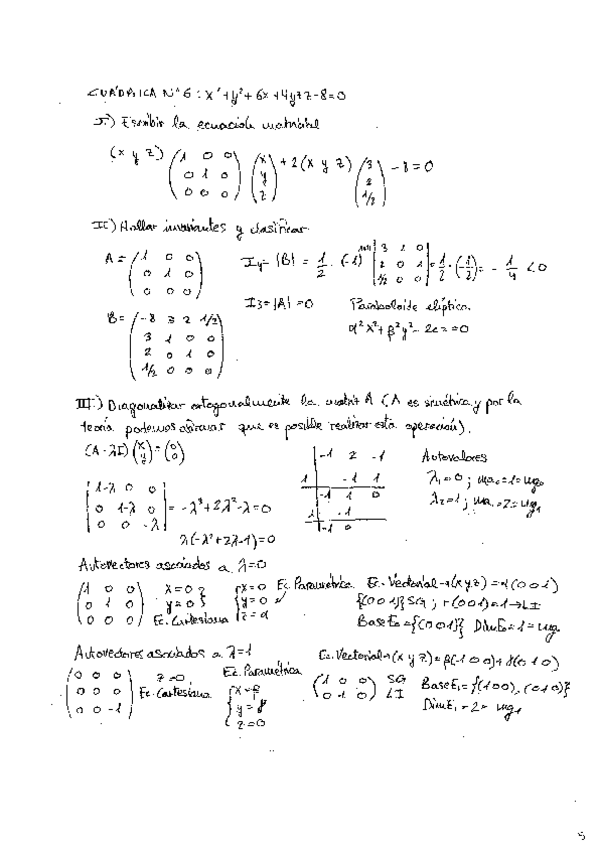 CUÁDRICA Nº6: x²+y²+6x+4y+z-8=0
I.) Escribir la ecuación matricial
(x y z) (1 0 0 / 0 1 0 / 0 0 0) (x / y / z) + 2 (x y z) (3 / 2 / 1/2) - 8 = 0
II.) Hallar invariantes y clasificar.
A = (1 0 0 / 0 1 0 / 0 0 0)
I4 = |B| = 1/2 · (-1) |3 1 0 / 2 0 1 / 1/2 0 0| = 1/2 · (-1/2) = - 1/4 < 0
I3 = |A| = 0 Paraboloide elíptico.
B = (-8 3 2 1/2 / 3 1 0 0 / 2 0 1 0 / 1/2 0 0 0)
α²x²+β²y²-2cz=0
III.) Diagonalizar ortogonalmente la matriz A (A es simétrica y por la
teoría podemos afirmar que es posible realizar esta operación).
(A-λI) (x / y) = (0 / 0)
|1-λ 0 0 / 0 1-λ 0 / 0 0 -λ| = -λ³+2λ²-λ=0
λ(-λ²+2λ-1)=0
-1 2 -1
1 -1 1
-1 1 0
1 -1
-1 0
Autovalores
λ1=0; ma0=1=mg0
λ2=1; ma1=2=mg1
Autovectores asociados a λ=0
(1 0 0 / 0 1 0 / 0 0 0) x=0 y=0 Ec. Cartesiana
{x=0 y=0 z=α Ec. Paramétrica
Ec. Vectorial→(x y z)=α(0 0 1)
{(0 0 1)} SG; r(0 0 1)=1→LI
Base E0={(0 0 1)} Dim E0=1=mg0
Autovectores asociados a λ=1
(0 0 0 / 0 0 0 / 0 0 -1) z=0 Ec. Cartesiana
Ec. Paramétrica {x=β y=γ z=0
Ec. Vectorial→(x y z)=β(1 0 0)+γ(0 1 0)
(1 0 0 / 0 1 0) SG LI
Base E1={(1 0 0), (0 1 0)}
Dim E1=2=mg1
5